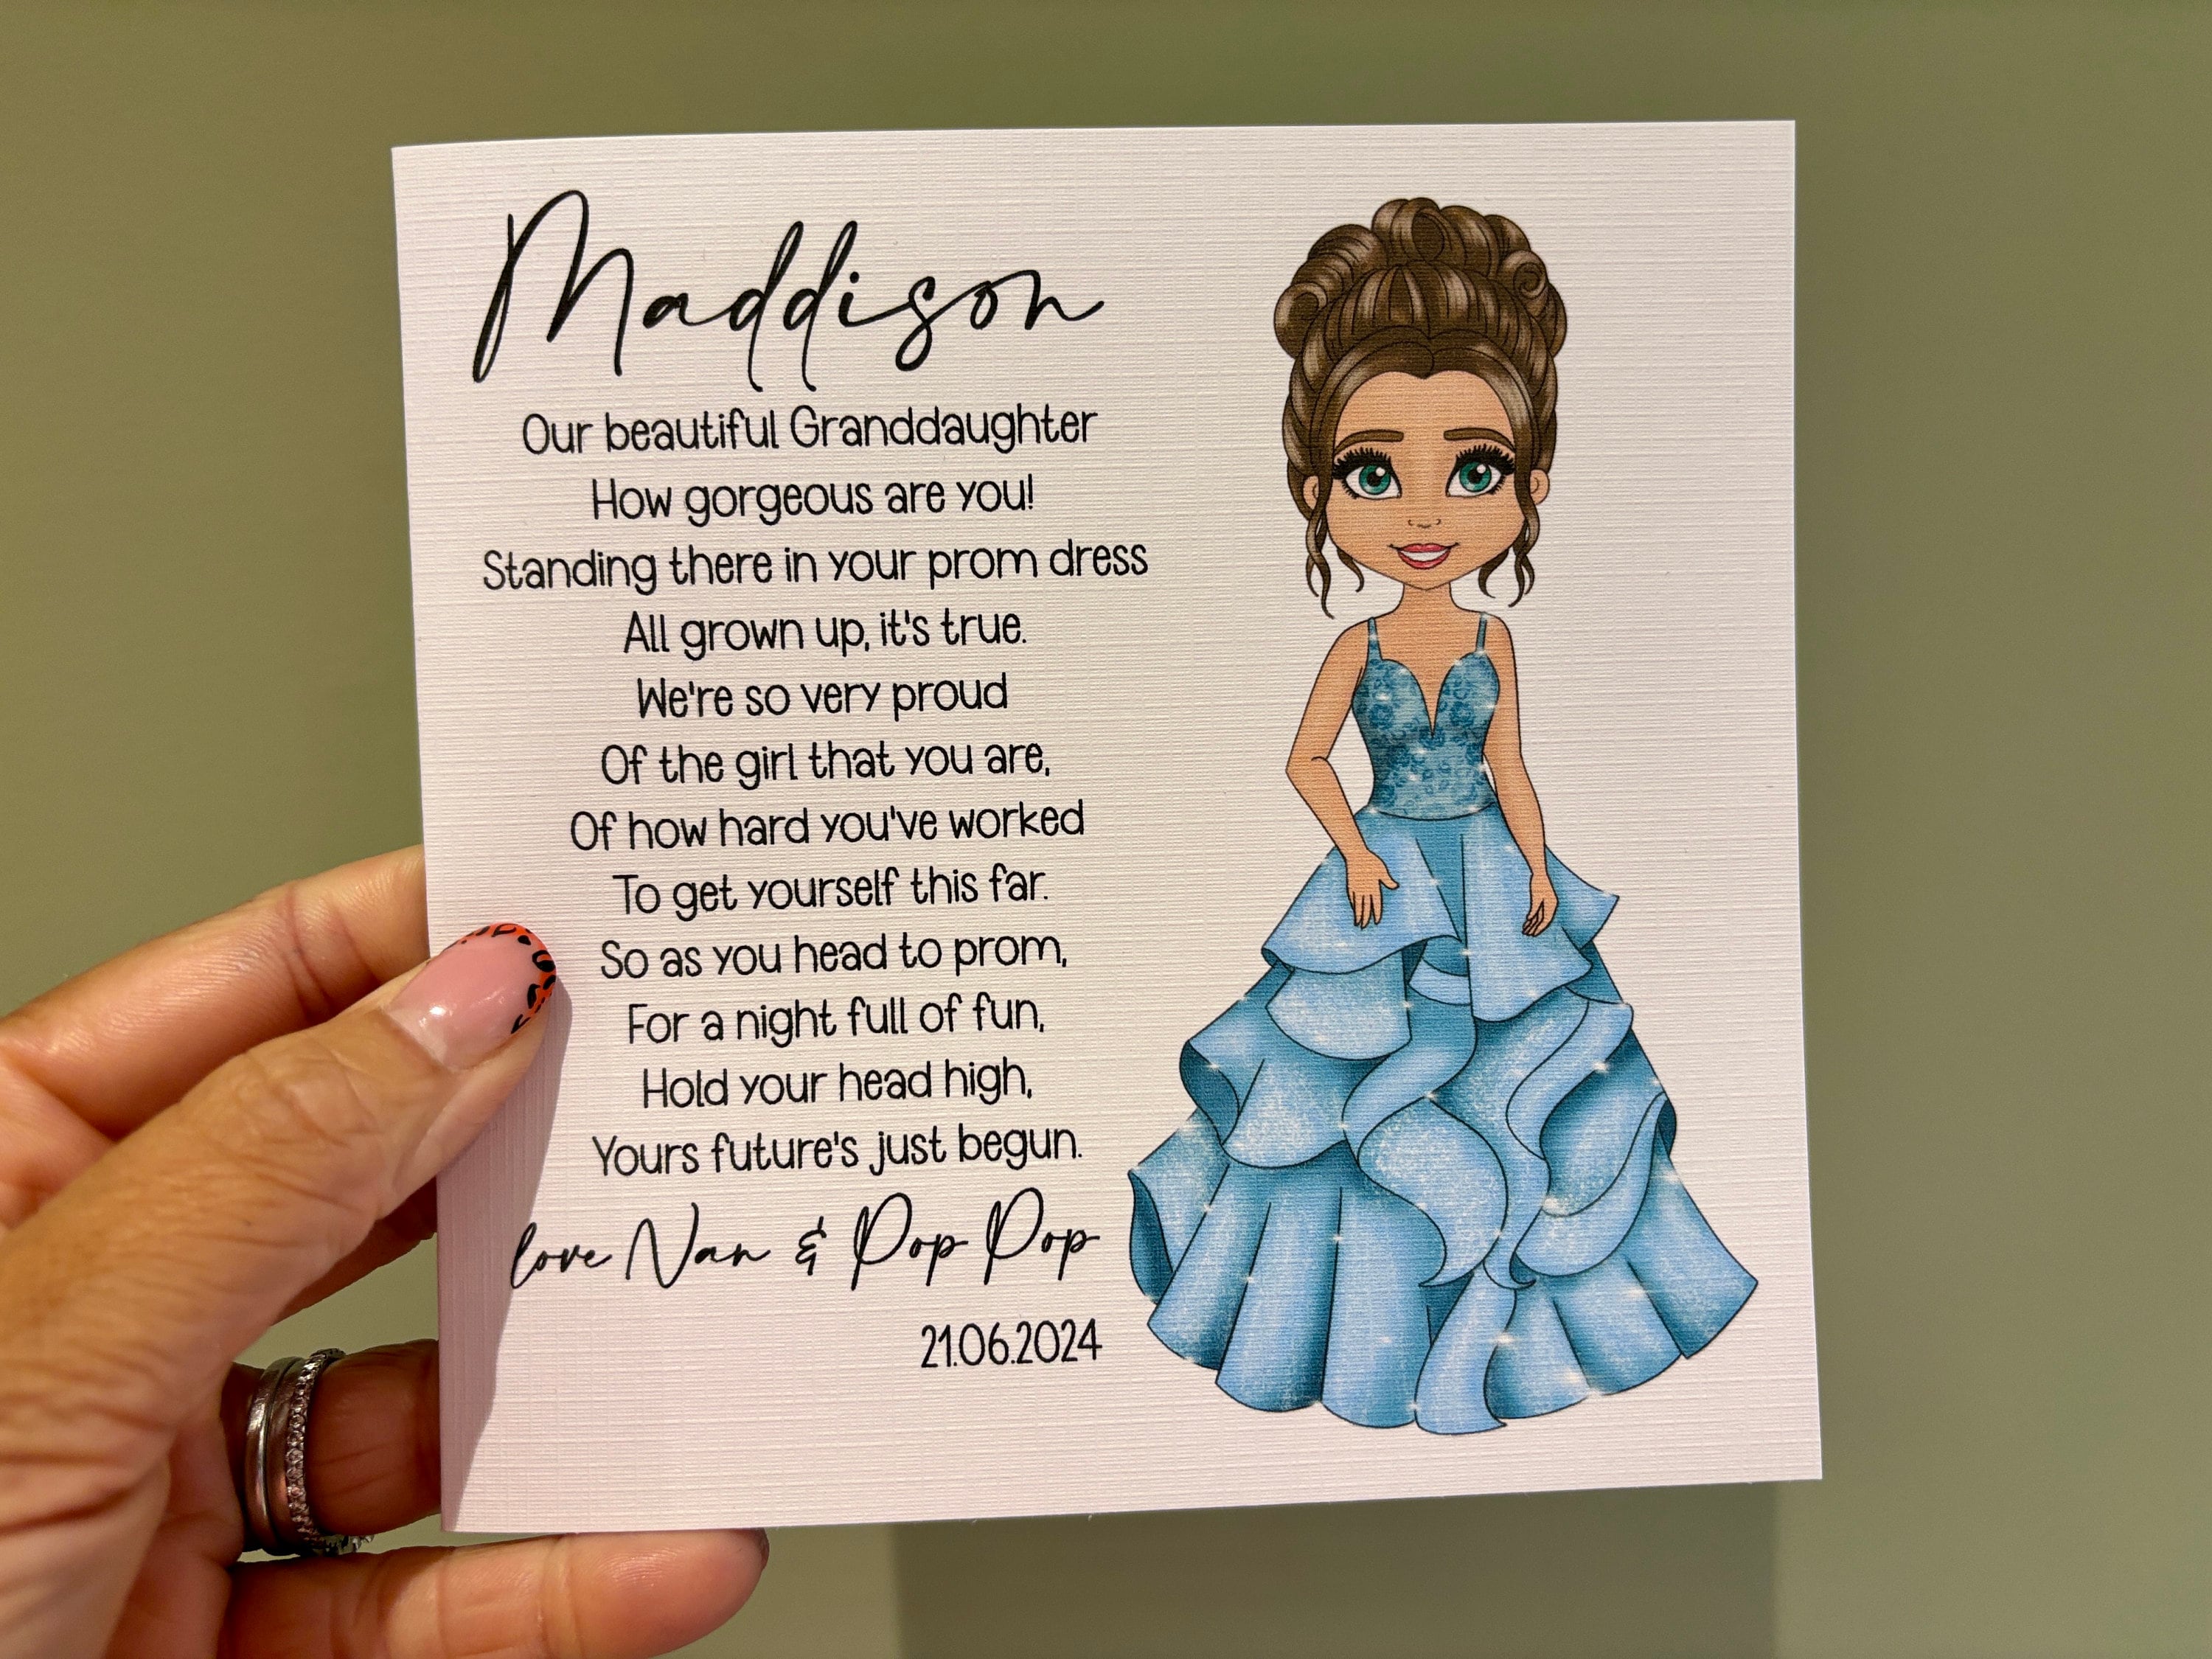 Maddison
Our beautiful Granddaughter
How gorgeous are you!
Standing there in your prom dress
All grown up, it's true.
We're so very proud
Of the girl that you are,
Of how hard you've worked
To get yourself this far.
So as you head to prom,
For a night full of fun,
Hold your head high,
Yours future's just begun.
love Nan & Pop Pop
21.06.2024